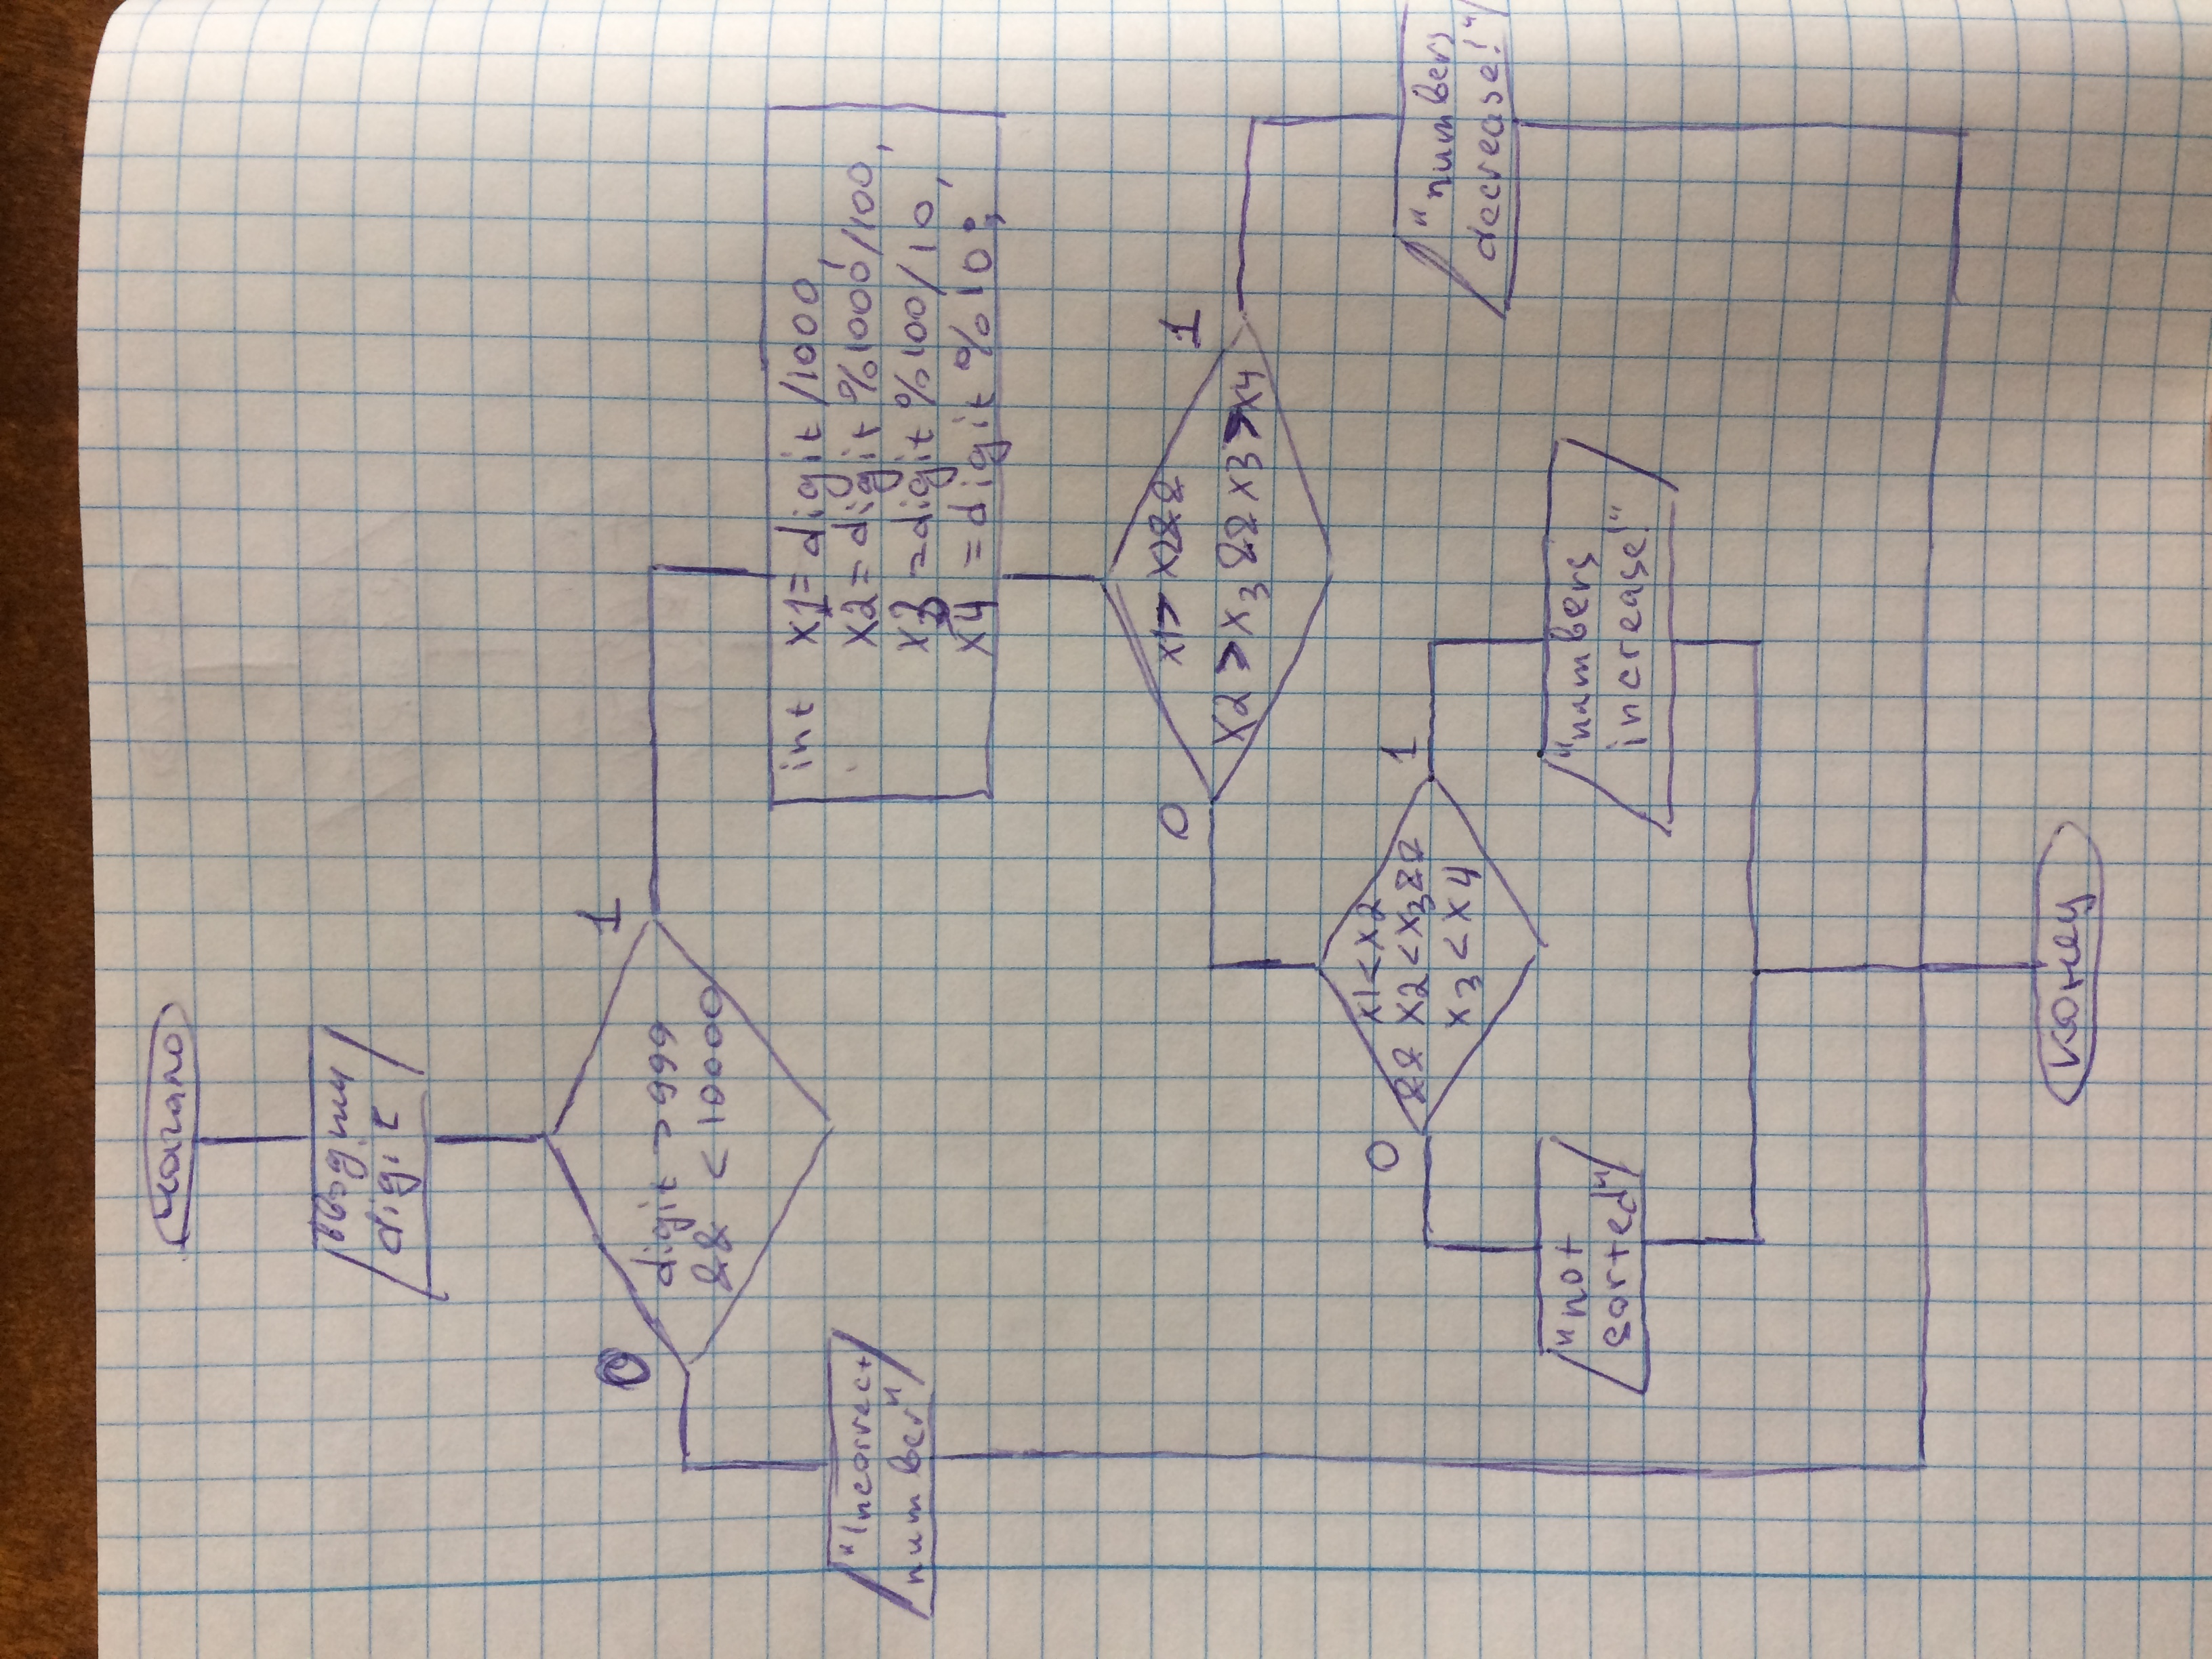 начало
вводим
digit
0
1
digit > 999
&& < 10000
"Incorrect
number"
int x1= digit /1000,
x2= digit %1000/100,
x3 =digit %100/10,
x4 =digit %10;
0
1
x1> x2&&
x2 >x3 && x3 >x4
0
1
x1<x2
&& x2 <x3&&
x3 <x4
"numbers
decrease!"
"not
sorted"
"numbers
increase!"
конец